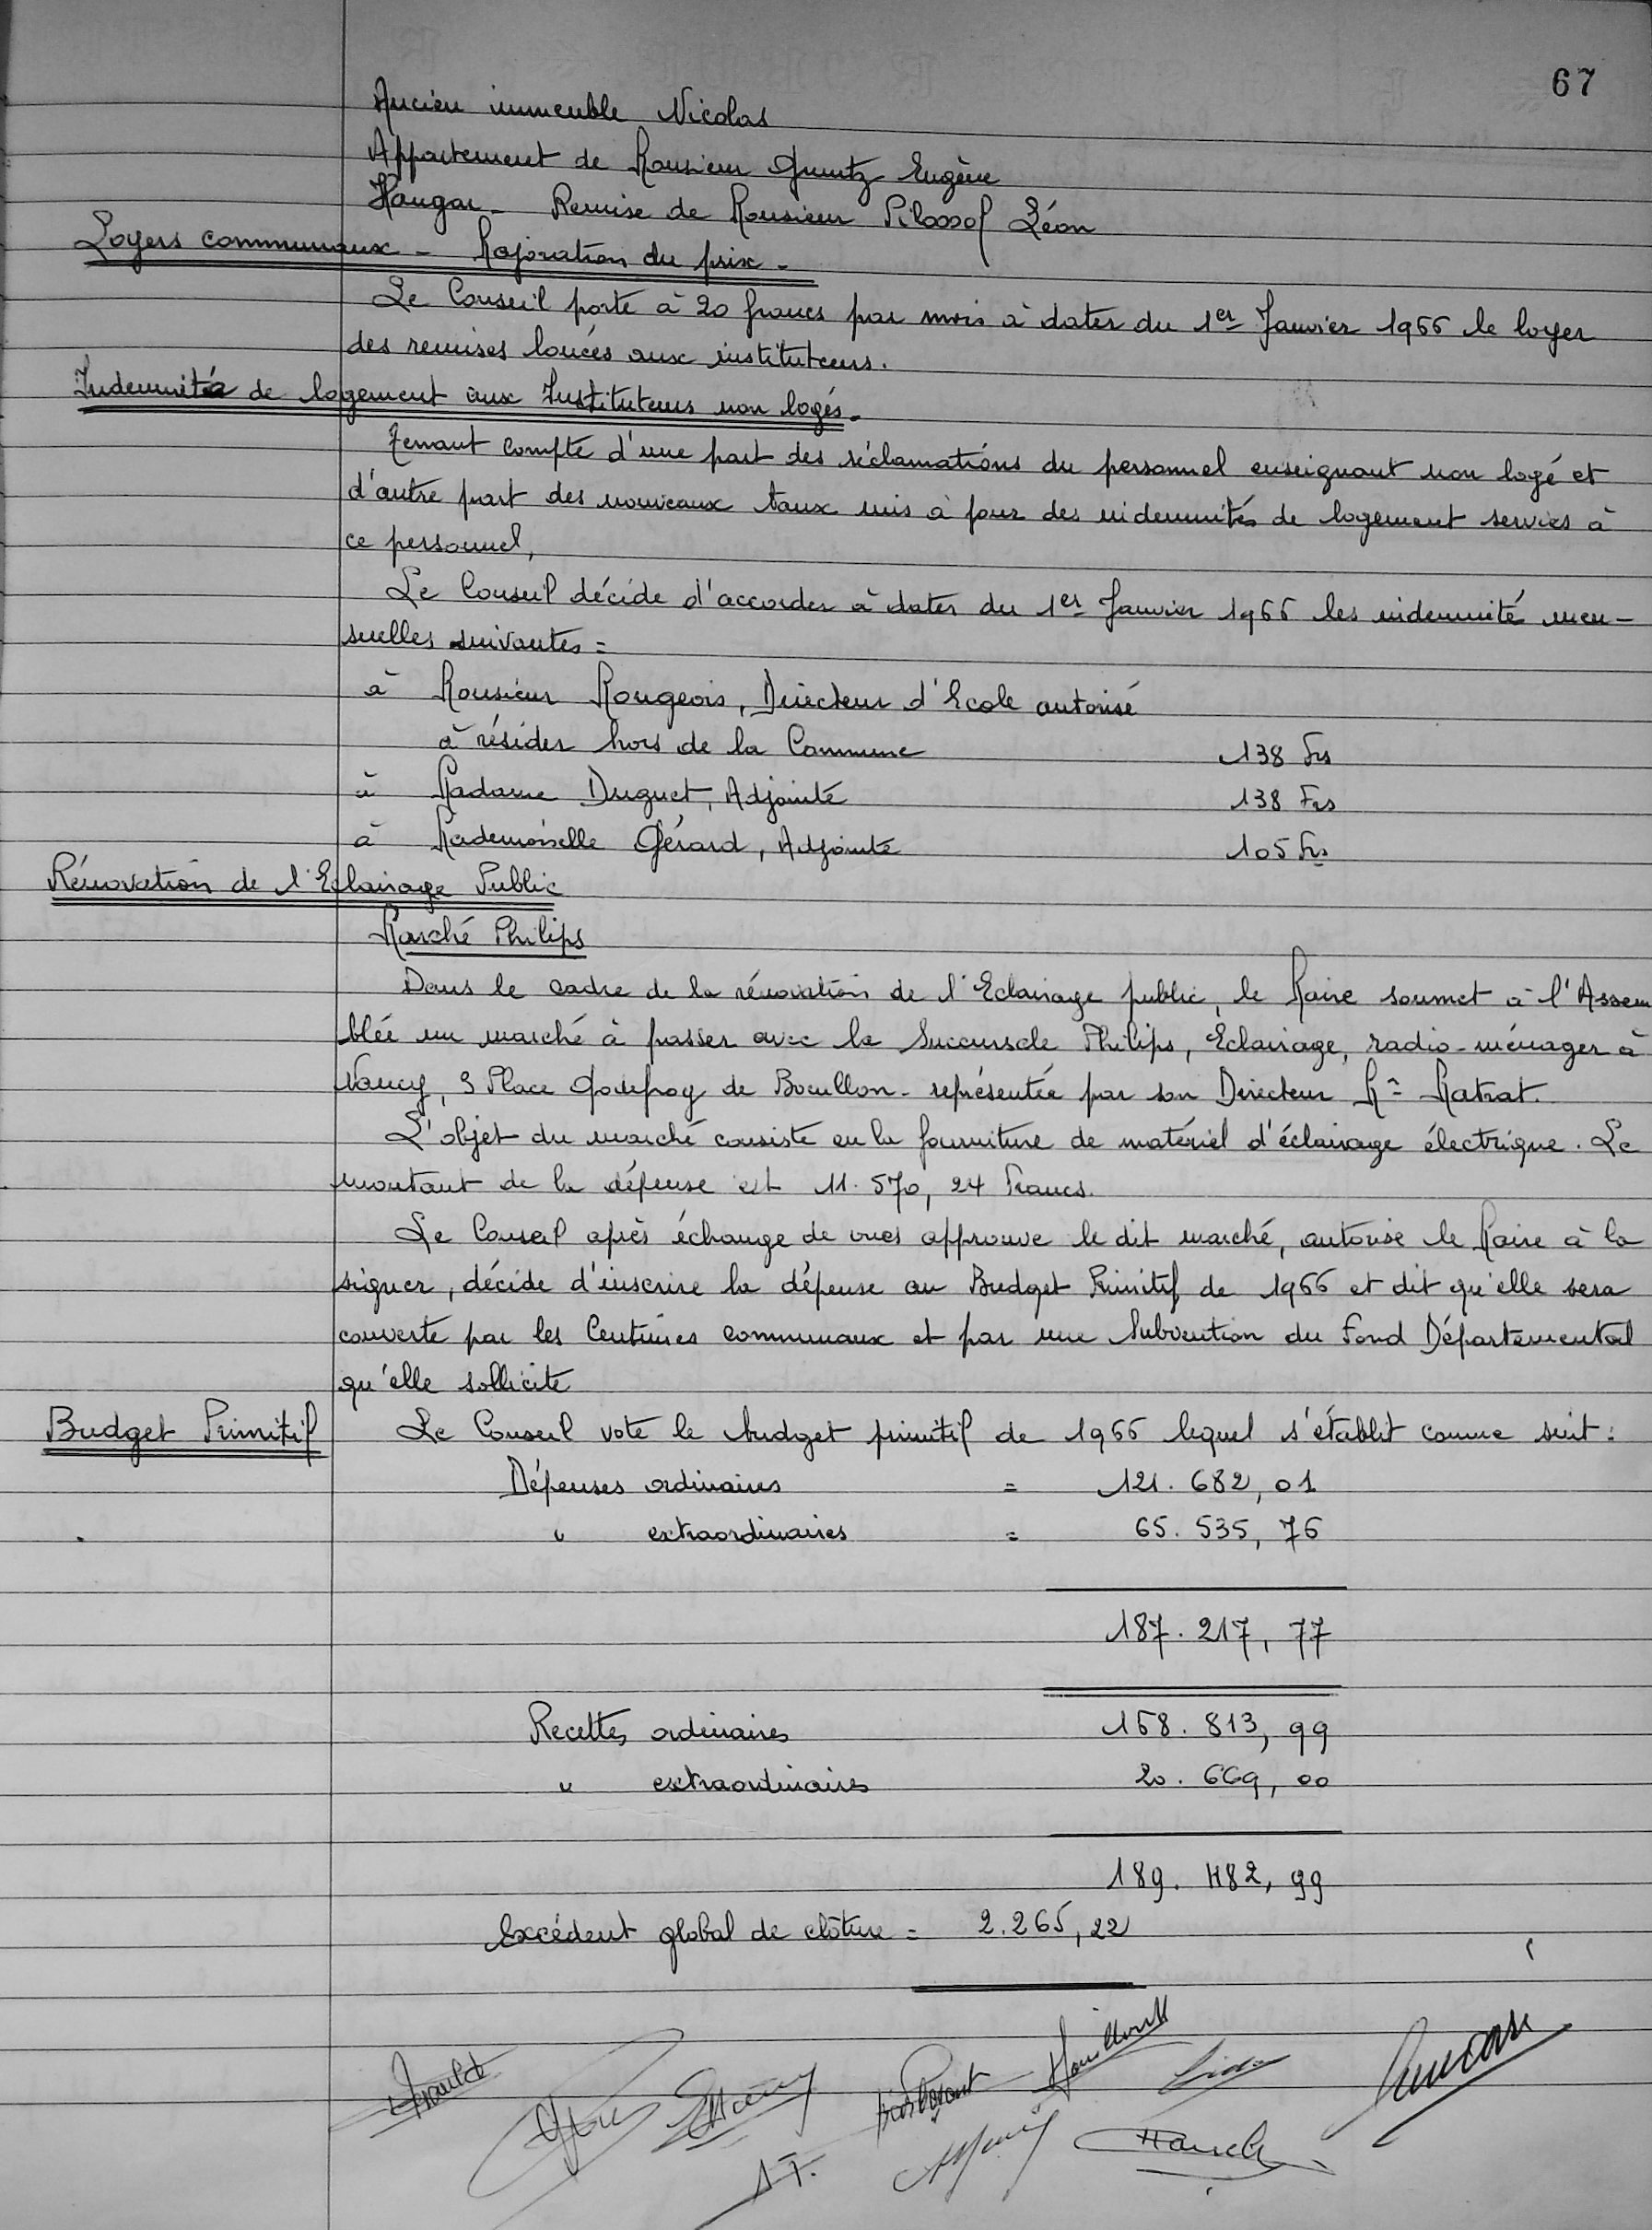 67
Ancien immeuble Nicolas
Appartement de Monsieur Guntz Eugène
Hangar - Remise de Monsieur Pilossof Léon
Loyers communaux - Majoration du prix -
Le Conseil porte à 20 francs par mois à dater du 1er Janvier 1966 le loyer
des remises louées aux instituteurs.
Indemnités de logement aux Instituteurs non logés.
Tenant compte d'une part des réclamations du personnel enseignant non logé et
d'autre part des nouveaux taux mis à jour des indemnités de logement servies à
ce personnel,
Le Conseil décide d'accorder à dater du 1er Janvier 1966 les indemnité men-
suelles suivantes =
à Monsieur Mougeois, Directeur d'Ecole autorisé
à résider hors de la Commune 138 Frs
à Madame Duguet, Adjointe 138 Frs
à Mademoiselle Gérard, Adjointe 105 Frs
Rénovation de l'Eclairage Public
Marché Philips
Dans le cadre de la rénovation de l'Eclairage public, le Maire soumet à l'Assem
blée un marché à passer avec la Succursale Philips, Eclairage, radio-ménager à
Nancy, 3 Place Godefroy de Bouillon - représentée par son Directeur Mr Matrat.
L'objet du marché consiste en la fourniture de matériel d'éclairage électrique. Le
montant de la dépense est 11.570,24 Francs.
Le Conseil après échange de vues approuve le dit marché, autorise le Maire à la
signer, décide d'inscrire la dépense au Budget Primitif de 1966 et dit qu'elle sera
couverte par les Centimes communaux et par une Subvention du Fond Départemental
qu'elle sollicite
Budget Primitif Le Conseil vote le budget primitif de 1966 lequel s'établit comme suit :
Dépenses ordinaires = 121.682,01
" extraordinaires = 65.535,76
187.217,77
Recettes ordinaires 168.813,99
" extraordinaires 20.669,00
189.482,99
Excédent global de clôture = 2.265,22